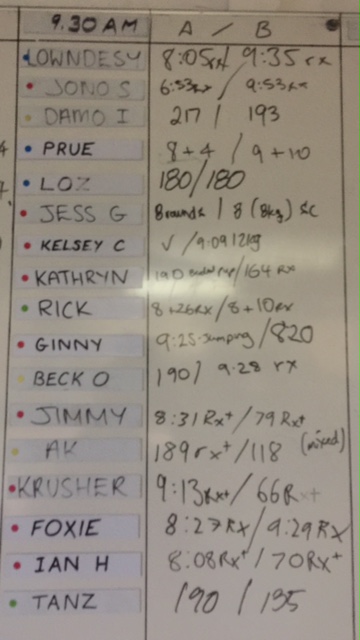 9.30 AM A / B
LOWNDESY 8:05rx / 9:35 rx
JONO S 6:53rx / 9:53rx
DAMO I 217 / 193
PRUE 8+4 / 9+10
LOZ 180/180
JESS G 8rounds / 8 (8kg) sc
KELSEY C √ /9:09 12kg
KATHRYN 190 / 164 Rx
RICK 8+26Rx / 8+10rx
GINNY 9:25 Jumping / 820
BECK O 190 / 9:28 rx
JIMMY 8:31 Rx+ / 79 Rx+
AK 189rx+ / 118 (mixed)
KRUSHER 9:13Rx+ / 66Rx+
FOXIE 8:27Rx / 9:29Rx
IAN H 8:08Rx+ / 70Rx+
TANZ 190 / 135